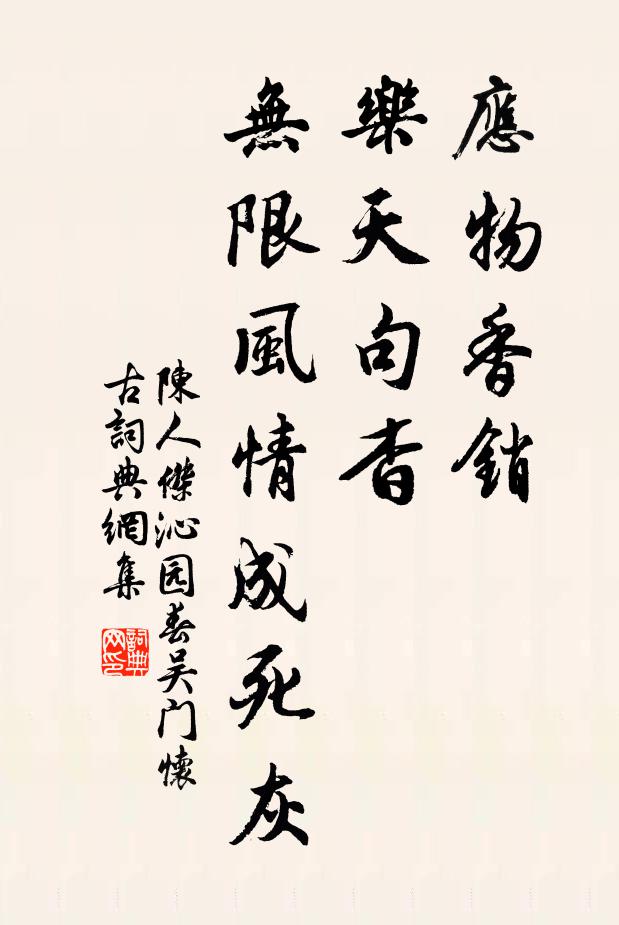 應物香銷
樂天句杳
無限風情成死灰
陳人傑沁园春吴门懷
古詞典網集
詞典网印